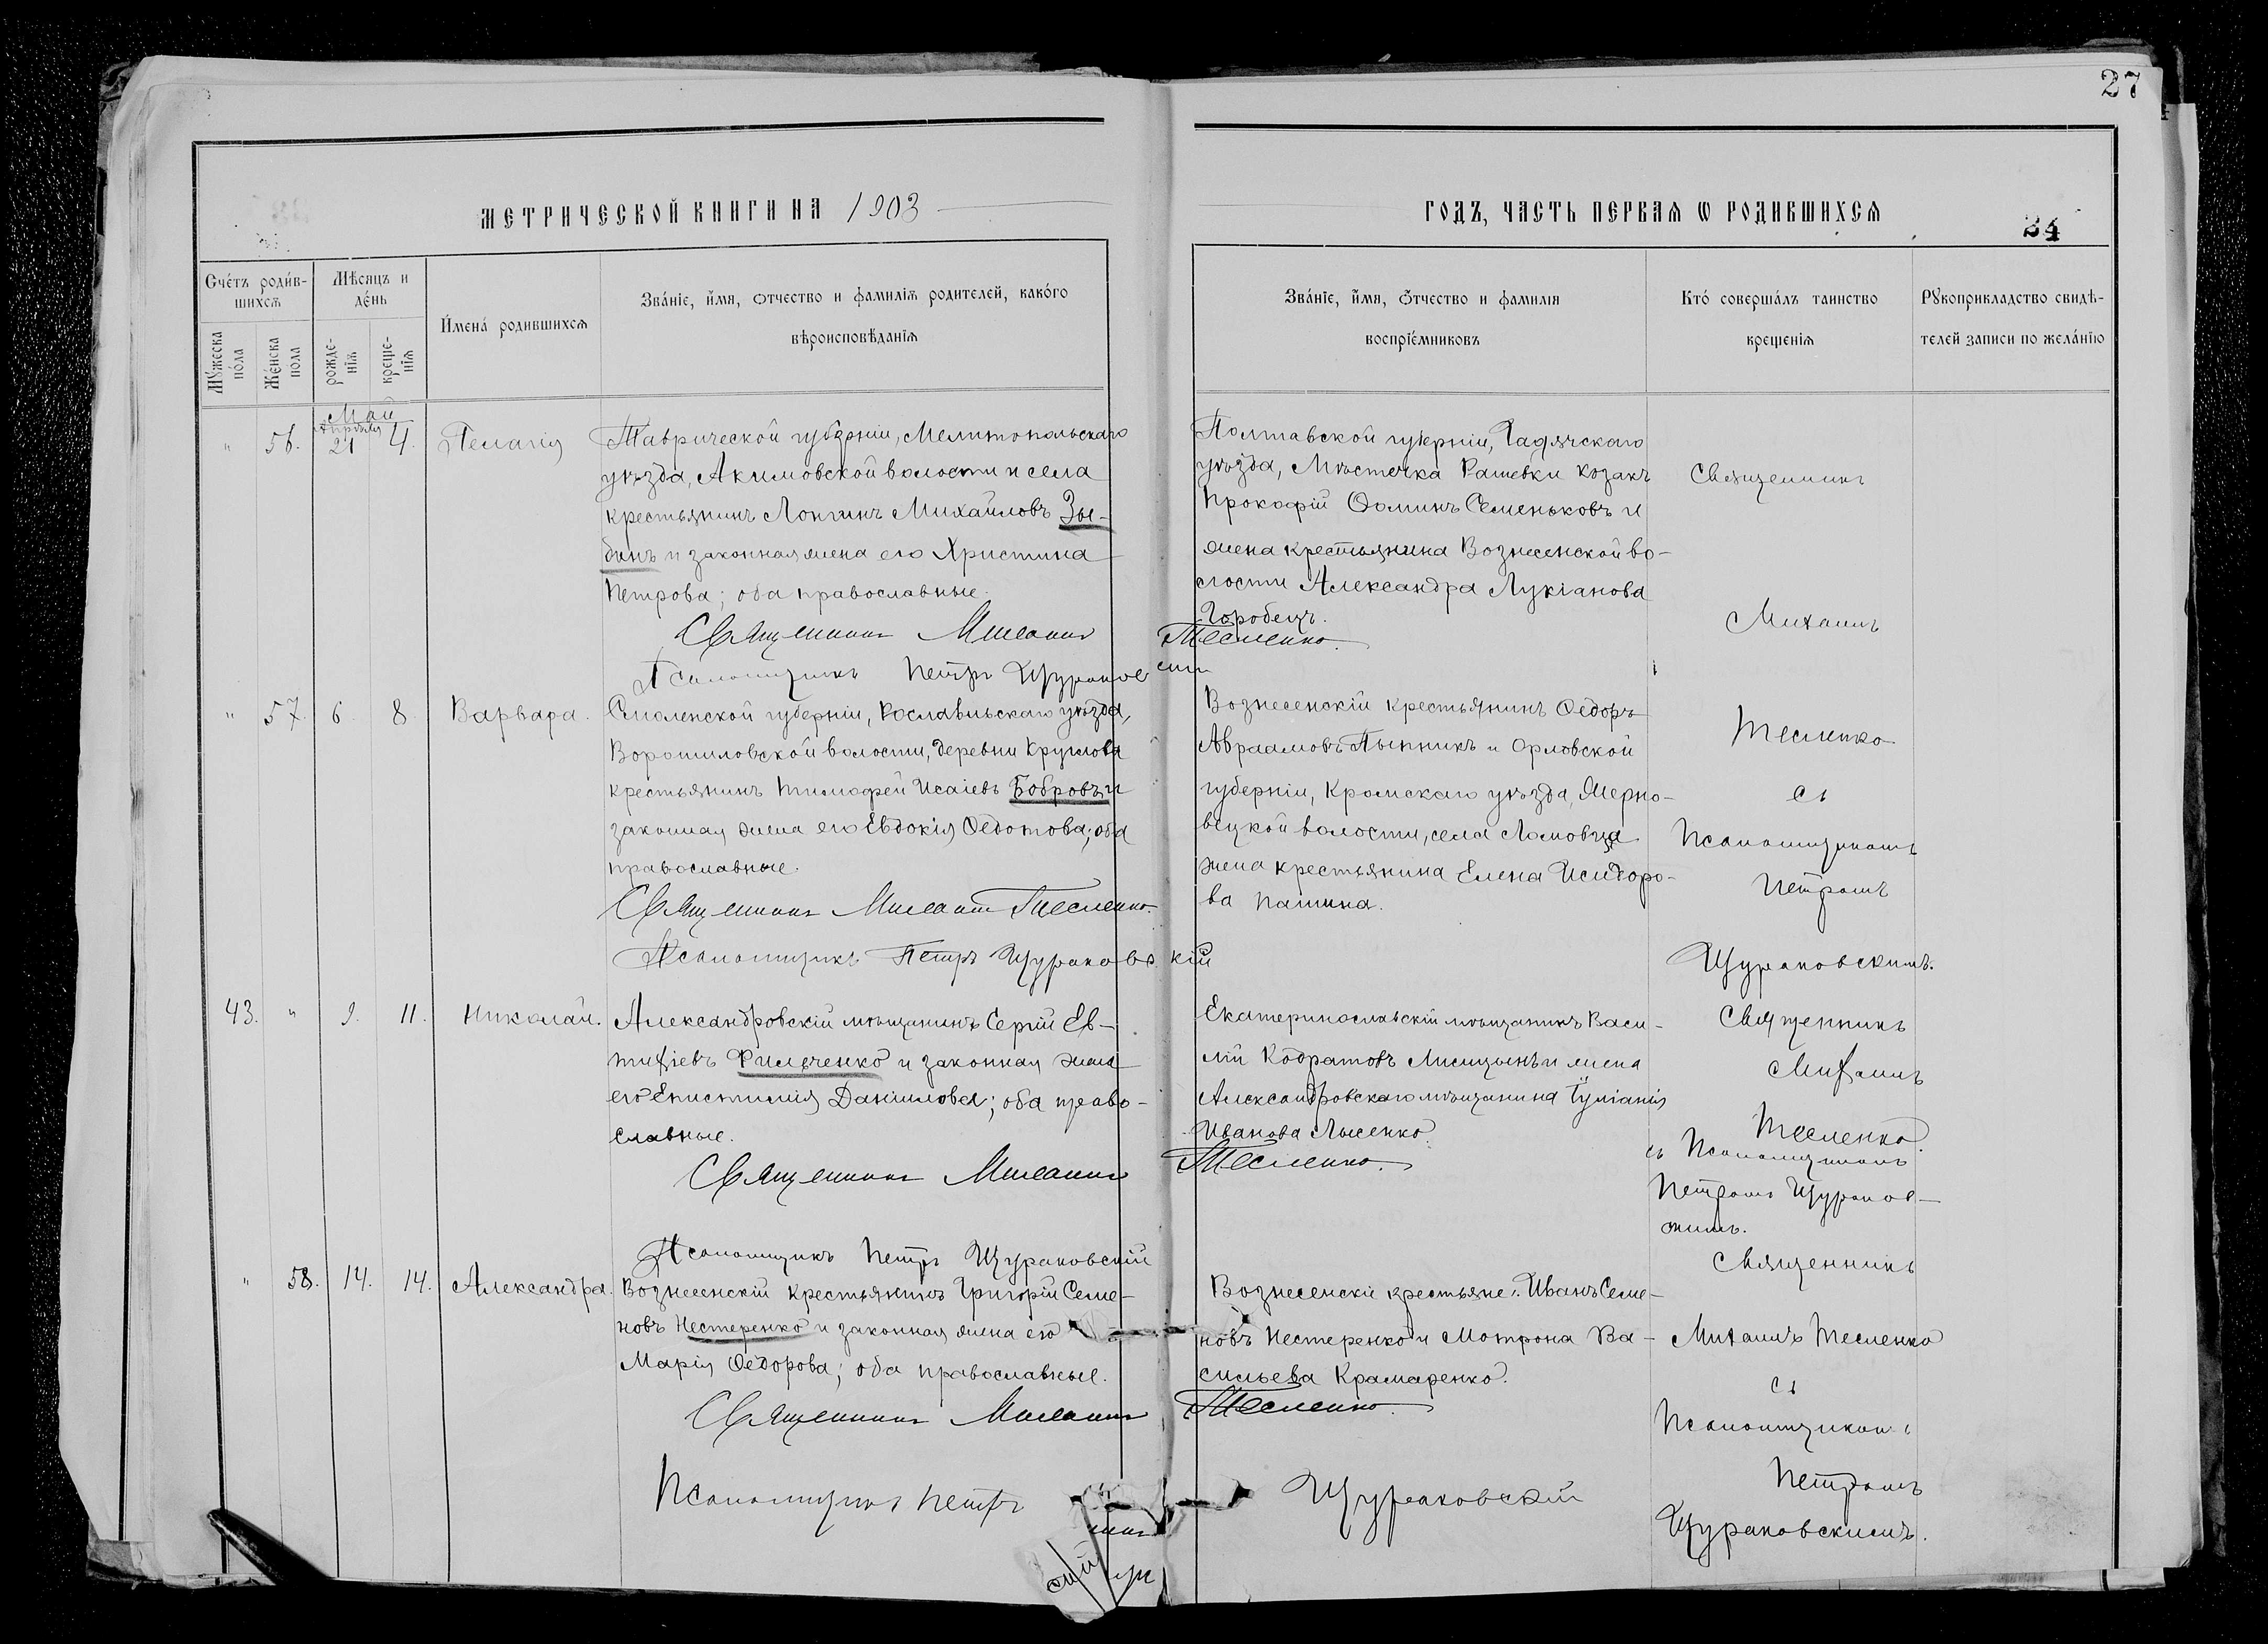 27
МЕТРИЧЕСКОЙ КНИГИ НА 1903
ГОДЪ, ЧАСТЬ ПЕРВАЯ Ѡ РОДИВШИХСЯ
34
Счетъ родив-
шихся
Мѣсяцъ и
день
Мужеска
пола
Женска
пола
рожде-
нія
креще-
нія
Имена родившихся
Званіе, имя, отчество и фамилія родителей, какого
вѣроисповѣданія
Званіе, имя, отчество и фамилія
воспріемниковъ
Кто совершалъ таинство
крещенія
Рукоприкладство свидѣ-
телей записи по желанію
Май
Апрѣля
" 56. 21 4. Пелагія
Таврической губерніи, Мелитопольскаго
уѣзда, Акимовской волости и села
крестьянинъ Логгинъ Михайловъ Зы-
бинъ и законная жена его Христина
Петрова; оба православные.
Священникъ Михаилъ Тесленко.
Псаломщикъ Петръ Щураковскій
Полтавской губерніи, Гадячскаго
уѣзда, Мѣстечка Рашевки козакъ
Прокофій Фоминъ Семеньковъ и
жена крестьянина Вознесенской во-
лости Александра Лукіанова
Горобецъ.
Священникъ
Михаилъ
Тесленко
съ
Псаломщикомъ
Петромъ
Щураковскимъ.
" 57. 6. 8. Варвара.
Смоленской губерніи, Рославльскаго уѣзда,
Ворошиловской волости, деревни Круглова
крестьянинъ Тимофей Исаіевъ Бобровъ и
законная жена его Евдокія Федотова; оба
православные.
Священникъ Михаилъ Тесленко.
Псаломщикъ Петръ Щураковскій
Вознесенскій крестьянинъ Федоръ
Авраамовъ и Орловской
губерніи, Кромскаго уѣзда,
волости, села Ломовца
жена крестьянина Елена Исидоро-
ва Пашина.
43. " 9. 11. Николай.
Александровскій мѣщанинъ Сергій Ев-
тихіевъ Фильченко и законная жена
его Епистимія Даніилова; оба право-
славные.
Священникъ Михаилъ Тесленко.
Псаломщикъ Петръ Щураковскій
Екатеринославскій мѣщанинъ Васи-
лій Кодратовъ Лисицынъ и жена
Александровскаго мѣщанина Іуліанія
Иванова Лысенко.
Священникъ
Михаилъ
Тесленко
съ Псаломщикомъ
Петромъ Щураков-
скимъ.
" 58. 14. 14. Александра.
Вознесенскій крестьянинъ Григорій Семе-
новъ Нестеренко и законная жена его
Марія Федорова; оба православные.
Священникъ Михаилъ Тесленко.
Псаломщикъ Петръ Щураковскій
Вознесенскіе крестьяне: Иванъ Семе-
новъ Нестеренко и Мотрона Ва-
сильева Крамаренко.
Священникъ
Михаилъ Тесленко
съ
Псаломщикомъ
Петромъ
Щураковскимъ.